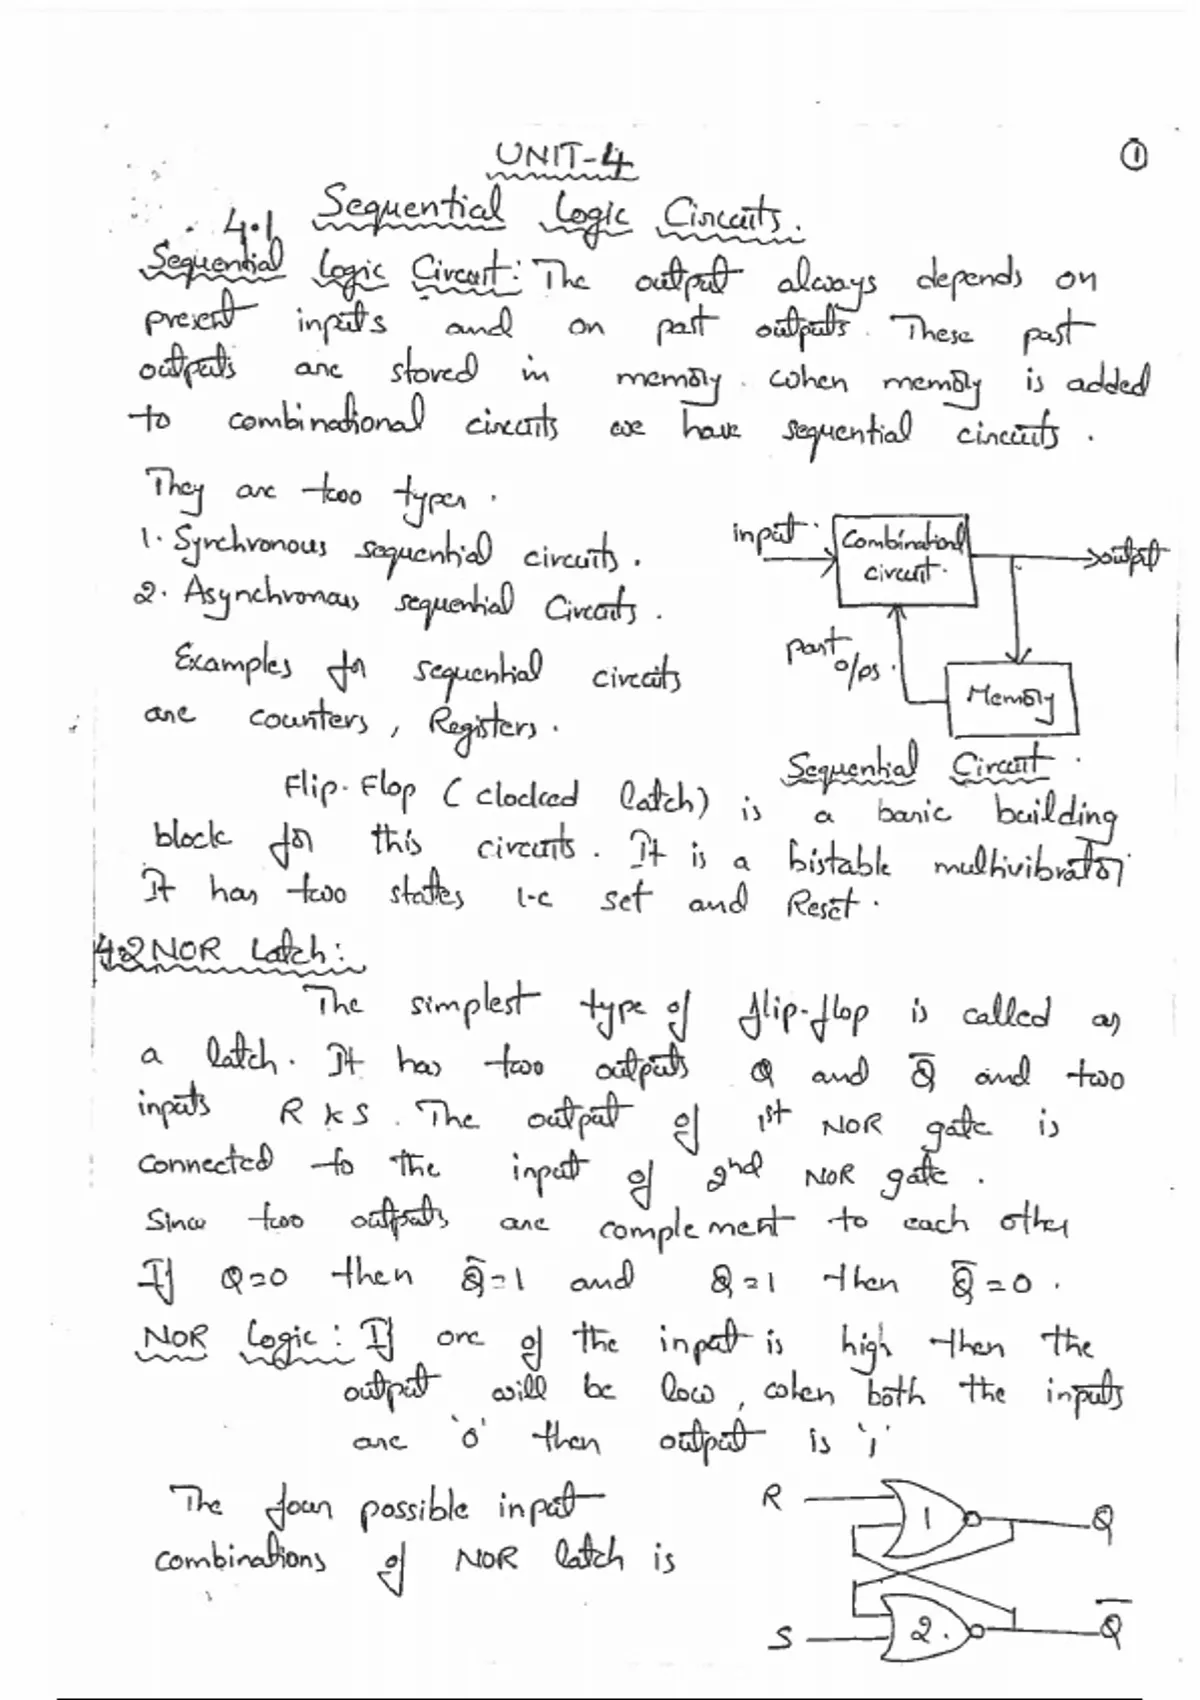 UNIT-4
①
4.1 Sequential Logic Circuits.
Sequential Logic Circuit: The output always depends on
present inputs and on past outputs. These past
outputs are stored in memory. when memory is added
to combinational circuits we have sequential circuits.
They are two types.
1. Synchronous sequential circuits.
2. Asynchronous sequential Circuits.
Examples for sequential circuits
are counters, Registers.
input
Combinational
circuit.
output
past
o/ps.
Memory
Sequential Circuit.
Flip-Flop (clocked latch) is a basic building
block for this circuits. It is a bistable multivibrator.
It has two states i-e set and Reset.
4.2 NOR Latch:
The simplest type of flip-flop is called as
a latch. It has two outputs Q and Q̅ and two
inputs R & S. The output of 1st NOR gate is
connected to the input of 2nd NOR gate.
Since two outputs are complement to each other
If Q=0 then Q̅=1 and Q=1 then Q̅=0.
NOR Logic: If one of the input is high then the
output will be low, when both the inputs
are '0' then output is '1'
The four possible input
combinations of NOR latch is
R
1
Q
S
2.
Q̅